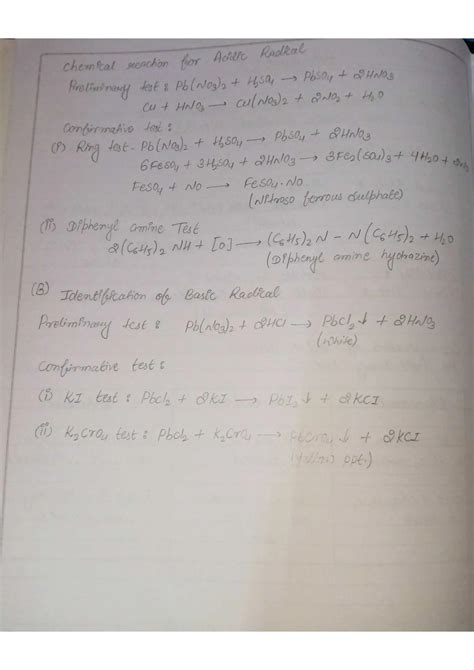 Chemical reaction for Acidic Radical
Preliminary test : Pb(NO3)2 + H2SO4 → PbSO4 + 2HNO3
Cu + HNO3 → Cu(NO3)2 + 2NO2 + H2O
Confirmative test :
(i) Ring test - Pb(NO3)2 + H2SO4 → PbSO4 + 2HNO3
6FeSO4 + 3H2SO4 + 2HNO3 → 3Fe2(SO4)3 + 4H2O + 2NO
FeSO4 + NO → FeSO4.NO
(Nitroso ferrous sulphate)
(ii) Diphenyl amine Test
2(C6H5)2 NH + [O] → (C6H5)2 N - N (C6H5)2 + H2O
(Diphenyl amine hydrazine)
(B) Identification of Basic Radical
Preliminary test : Pb(NO3)2 + 2HCl → PbCl2↓ + 2HNO3
(white)
Confirmative test :
(i) KI test : PbCl2 + 2KI → PbI2↓ + 2KCl
(ii) K2CrO4 test : PbCl2 + K2CrO4 → PbCrO4↓ + 2KCl
(yellow ppt.)